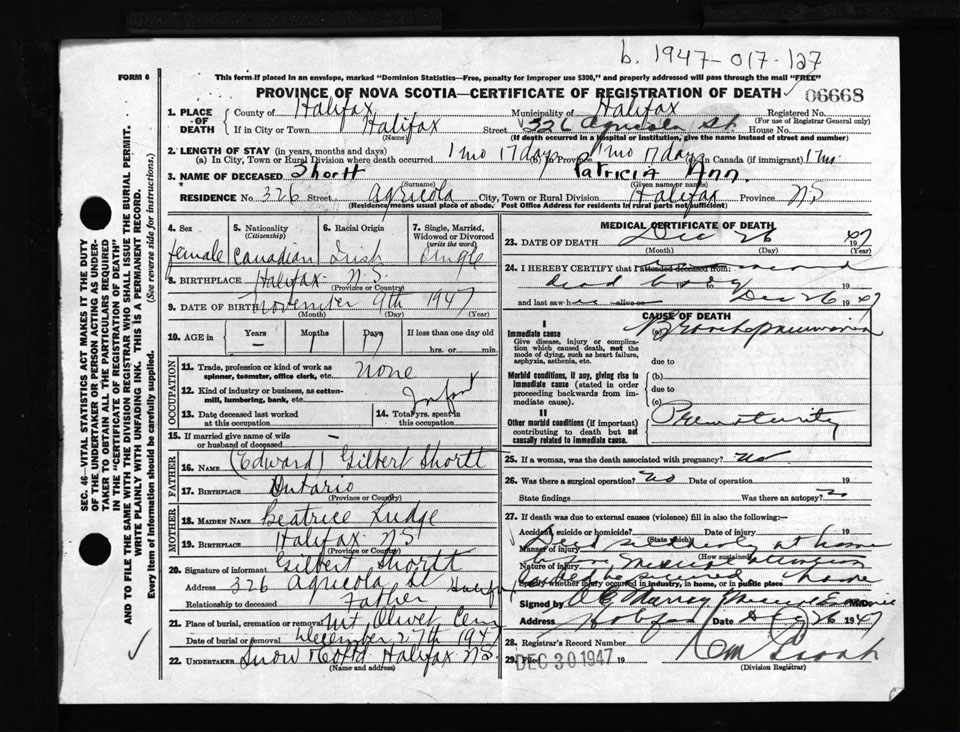 b. 1947-017-127
FORM 6
This form if placed in an envelope, marked "Dominion Statistics—Free, penalty for improper use $300," and properly addressed will pass through the mail "FREE"
PROVINCE OF NOVA SCOTIA—CERTIFICATE OF REGISTRATION OF DEATH
06668
1. PLACE OF DEATH
County of Halifax
Municipality of Halifax
Registered No.
(For use of Registrar General only)
If in City or Town Halifax Street 326 Agricola St. House No.
(Name)
(If death occurred in a hospital or institution, give the name instead of street and number)
2. LENGTH OF STAY (in years, months and days)
(a) In City, Town or Rural Division where death occurred 1 mo 17 days (b) In Province 1 mo 17 days (c) In Canada (if immigrant) 1 mo.
3. NAME OF DECEASED Shortt Patricia Ann.
(Surname) (Given name or names)
RESIDENCE No. 326 Street Agricola City, Town or Rural Division Halifax Province NS
(Residence means usual place of abode. Post Office Address for residents in rural parts not sufficient)
4. Sex
female
5. Nationality (Citizenship)
Canadian
6. Racial Origin
Irish
7. Single, Married, Widowed or Divorced (write the word)
Single
8. BIRTHPLACE Halifax N.S.
(Province or Country)
9. DATE OF BIRTH November 9th 1947
(Month) (Day) (Year)
10. AGE in Years Months Days If less than one day old
— 1 17 hrs. or min.
OCCUPATION
11. Trade, profession or kind of work as spinner, teamster, office clerk, etc. none
12. Kind of industry or business, as cotton-mill, lumbering, bank, etc. Infant
13. Date deceased last worked at this occupation
14. Total yrs. spent in this occupation
15. If married give name of wife or husband of deceased —
FATHER
16. NAME (Edward) Gilbert Shortt
17. BIRTHPLACE Ontario
(Province or Country)
MOTHER
18. MAIDEN NAME Beatrice Ludge
19. BIRTHPLACE Halifax NS
(Province or Country)
20. Signature of informant Gilbert Shortt
Address 326 Agricola St Halifax
Relationship to deceased Father
21. Place of burial, cremation or removal Mt Olivet Cem
Date of burial or removal December 27th 1947
22. UNDERTAKER Snow Co Ltd Halifax NS.
(Name and address)
MEDICAL CERTIFICATE OF DEATH
23. DATE OF DEATH Dec 26 1947
(Month) (Day) (Year)
24. I HEREBY CERTIFY that I attended deceased from:
dead body
19 to Dec 26 1947
and last saw h alive on 19
CAUSE OF DEATH
I
Immediate cause
Give disease, injury or complication which caused death, not the mode of dying, such as heart failure, asphyxia, asthenia, etc.
(a) Bronchopneumonia
due to
Morbid conditions, if any, giving rise to immediate cause (stated in order proceeding backwards from immediate cause).
(b)
due to
(c)
II
Other morbid conditions (if important) contributing to death but not causally related to immediate cause.
Prematurity
25. If a woman, was the death associated with pregnancy? No
26. Was there a surgical operation? No Date of operation 19
State findings Was there an autopsy? no
27. If death was due to external causes (violence) fill in also the following:—
Accident, suicide or homicide? Date of injury 19
(State which)
Manner of injury
(How sustained)
Nature of injury
Specify whether injury occurred in industry, in home, or in public place
at home
medical attention
home
Signed by M.D.
Address Halifax Date Dec 26 1947
28. Registrar's Record Number
29. Filed DEC 30 1947 19
(Division Registrar)
SEC. 46—VITAL STATISTICS ACT MAKES IT THE DUTY OF THE UNDERTAKER OR PERSON ACTING AS UNDERTAKER TO OBTAIN ALL THE PARTICULARS REQUIRED IN THE "CERTIFICATE OF REGISTRATION OF DEATH" AND TO FILE THE SAME WITH THE DIVISION REGISTRAR WHO SHALL ISSUE THE BURIAL PERMIT.
WRITE PLAINLY WITH UNFADING INK. THIS IS A PERMANENT RECORD.
Every item of information should be carefully supplied. (See reverse side for instructions.)